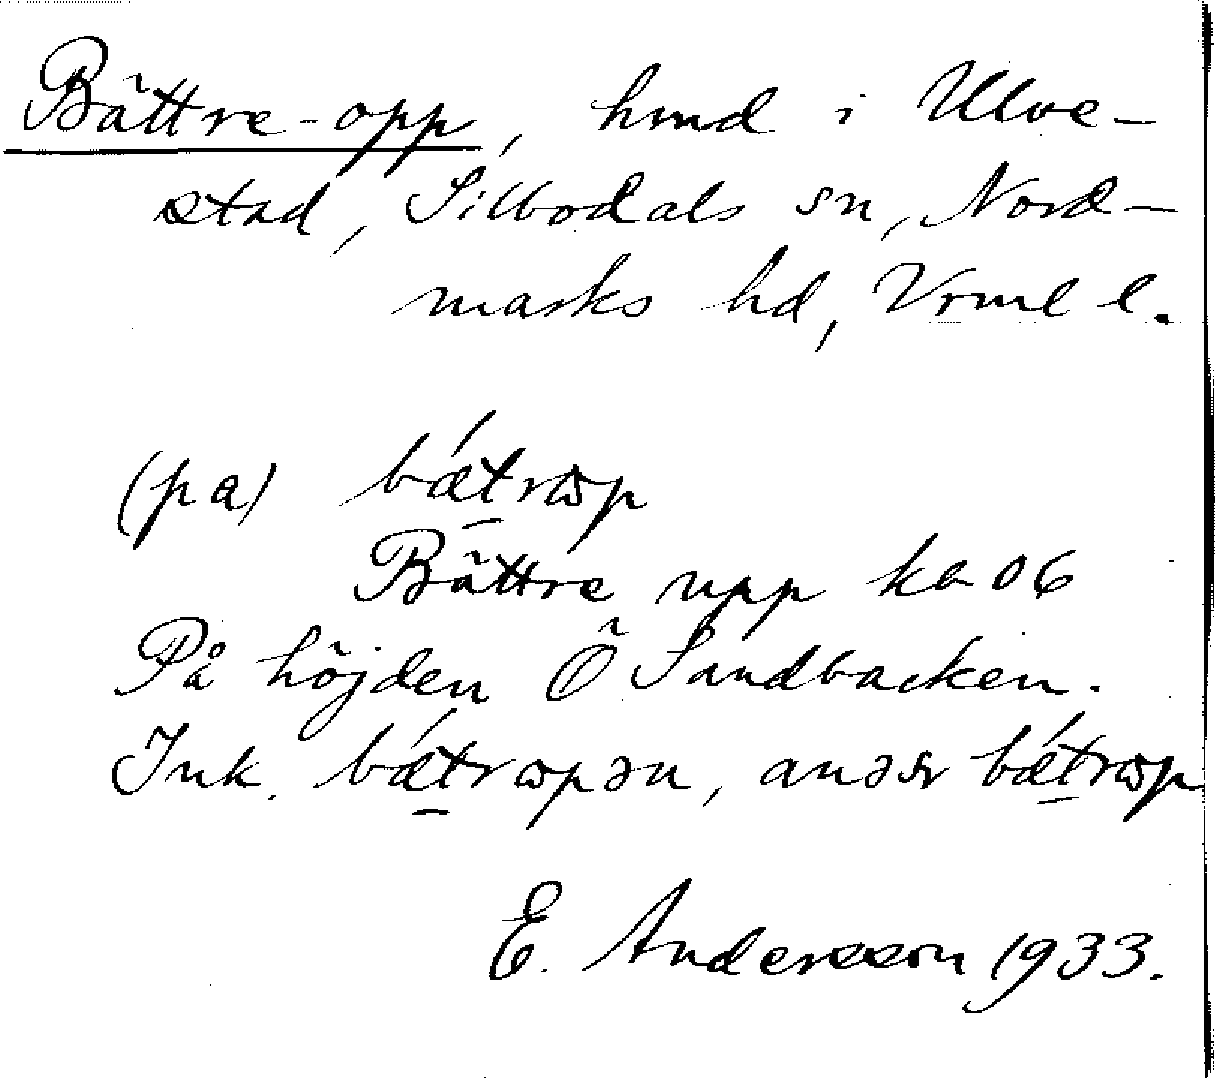 Bättre-opp, hmd i Ulve-
stad, Silbodals sn, Nord-
marks hd, Vrml l.
(pa) bǽtrɷp
Bättre upp ka 06
På höjden Ö Sandbacken.
Ink. bǽtrɷpən, anəsr bǽtrɷp
E. Andersson 1933.